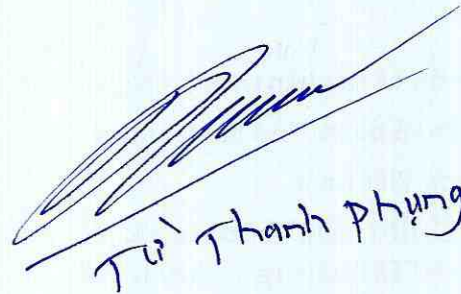 Từ Thanh Phụng